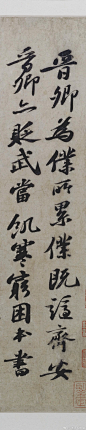 晉卿為僕所累僕既謫齊安
晉卿亦貶武當飢寒窮困本書